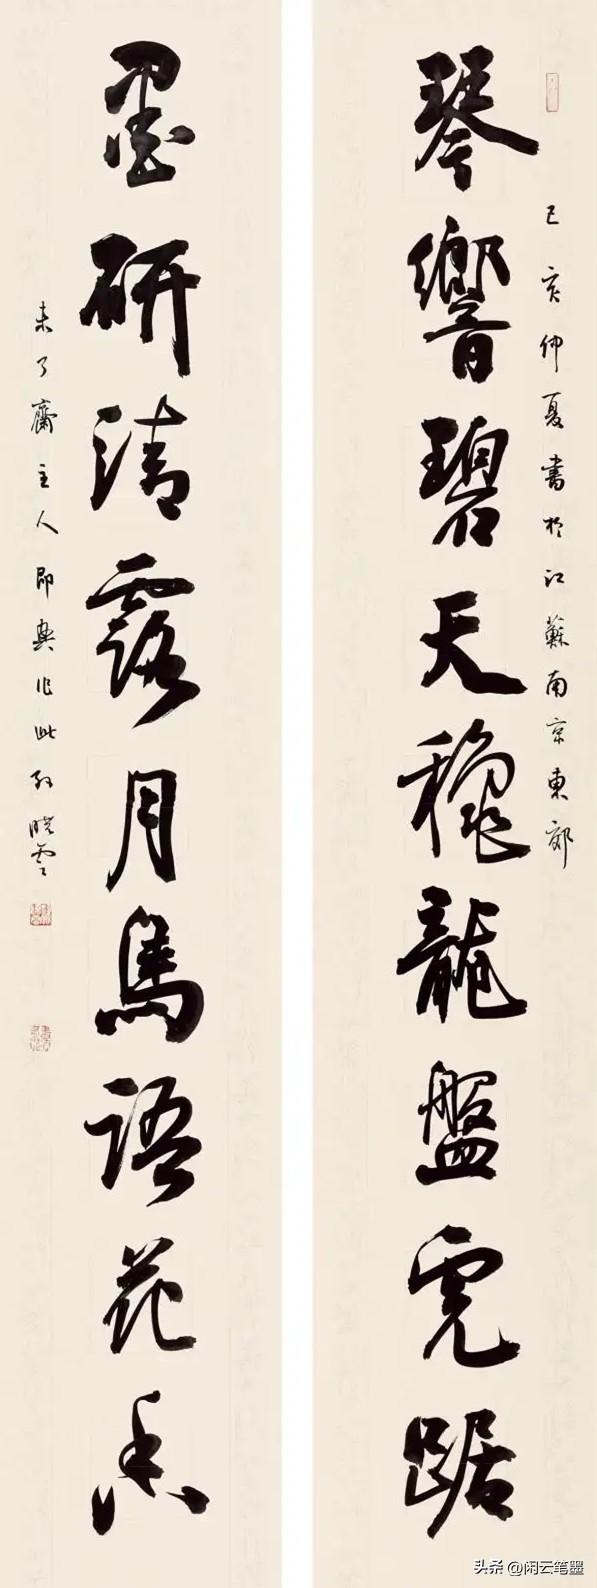 己亥仲夏書於江蘇南京東郊
琴響碧天穩龍盤虎踞
墨研清露月鳥語花香
未了齋主人即興作此孫曉雲
头条 @闲云笔墨